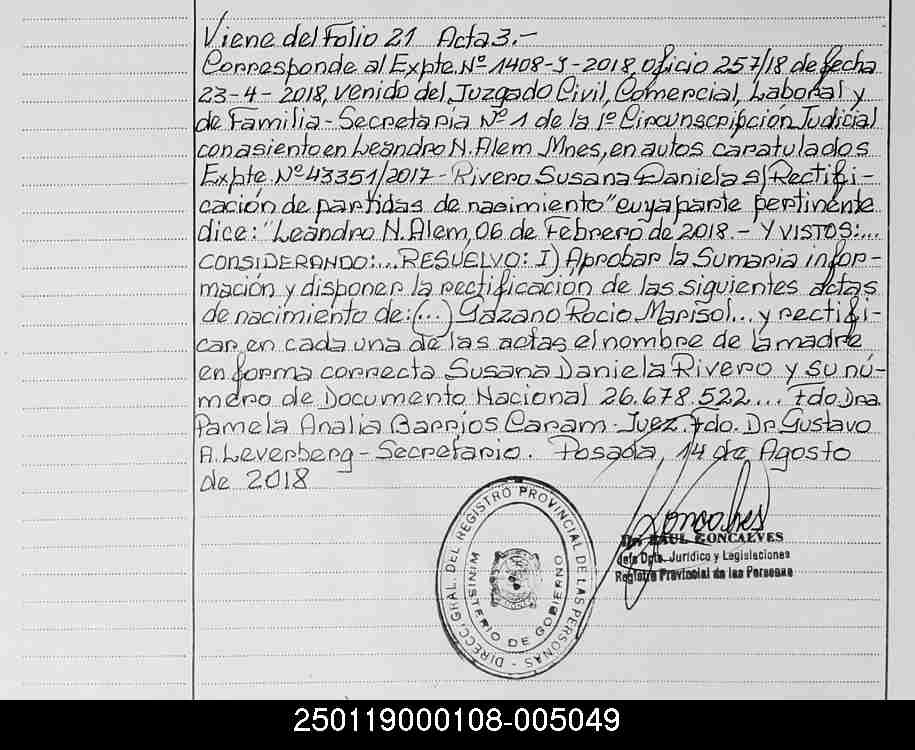 Viene del Folio 21 Acta 3.-
Corresponde al Expte. Nº 1408-J-2018, Oficio 257/18 de fecha
23-4-2018, venido del Juzgado Civil, Comercial, Laboral y
de Familia-Secretaria Nº 1 de la 1º Circunscripción Judicial
con asiento en Leandro N. Alem Mnes, en autos caratulados
Expte. Nº 43351/2017- Rivero Susana Daniela s/ Rectifi-
cación de partidas de nacimiento" cuya parte pertinente
dice: "Leandro N. Alem, 06 de Febrero de 2018.- Y VISTOS:...
CONSIDERANDO:... RESUELVO: I) Aprobar la Sumaria infor-
mación y disponer la rectificación de las siguientes actas
de nacimiento de: (...) Gazano Rocio Marisol... y rectifi-
car en cada una de las actas el nombre de la madre
en forma correcta Susana Daniela Rivero y su nú-
mero de Documento Nacional 26.678.522... Fdo Dra.
Pamela Analia Barrios Caram-Juez. Fdo. Dr Gustavo
A. Leverberg-Secretario. Posada, 14 de Agosto
de 2018
DIRECC. GRAL. DEL REGISTRO PROVINCIAL DE LAS PERSONAS -
MINISTERIO DE GOBIERNO
Goncalves
Dr. RAUL GONCALVES
Jefe Dpto. Jurídico y Legislaciones
Registro Provincial de las Personas
250119000108-005049